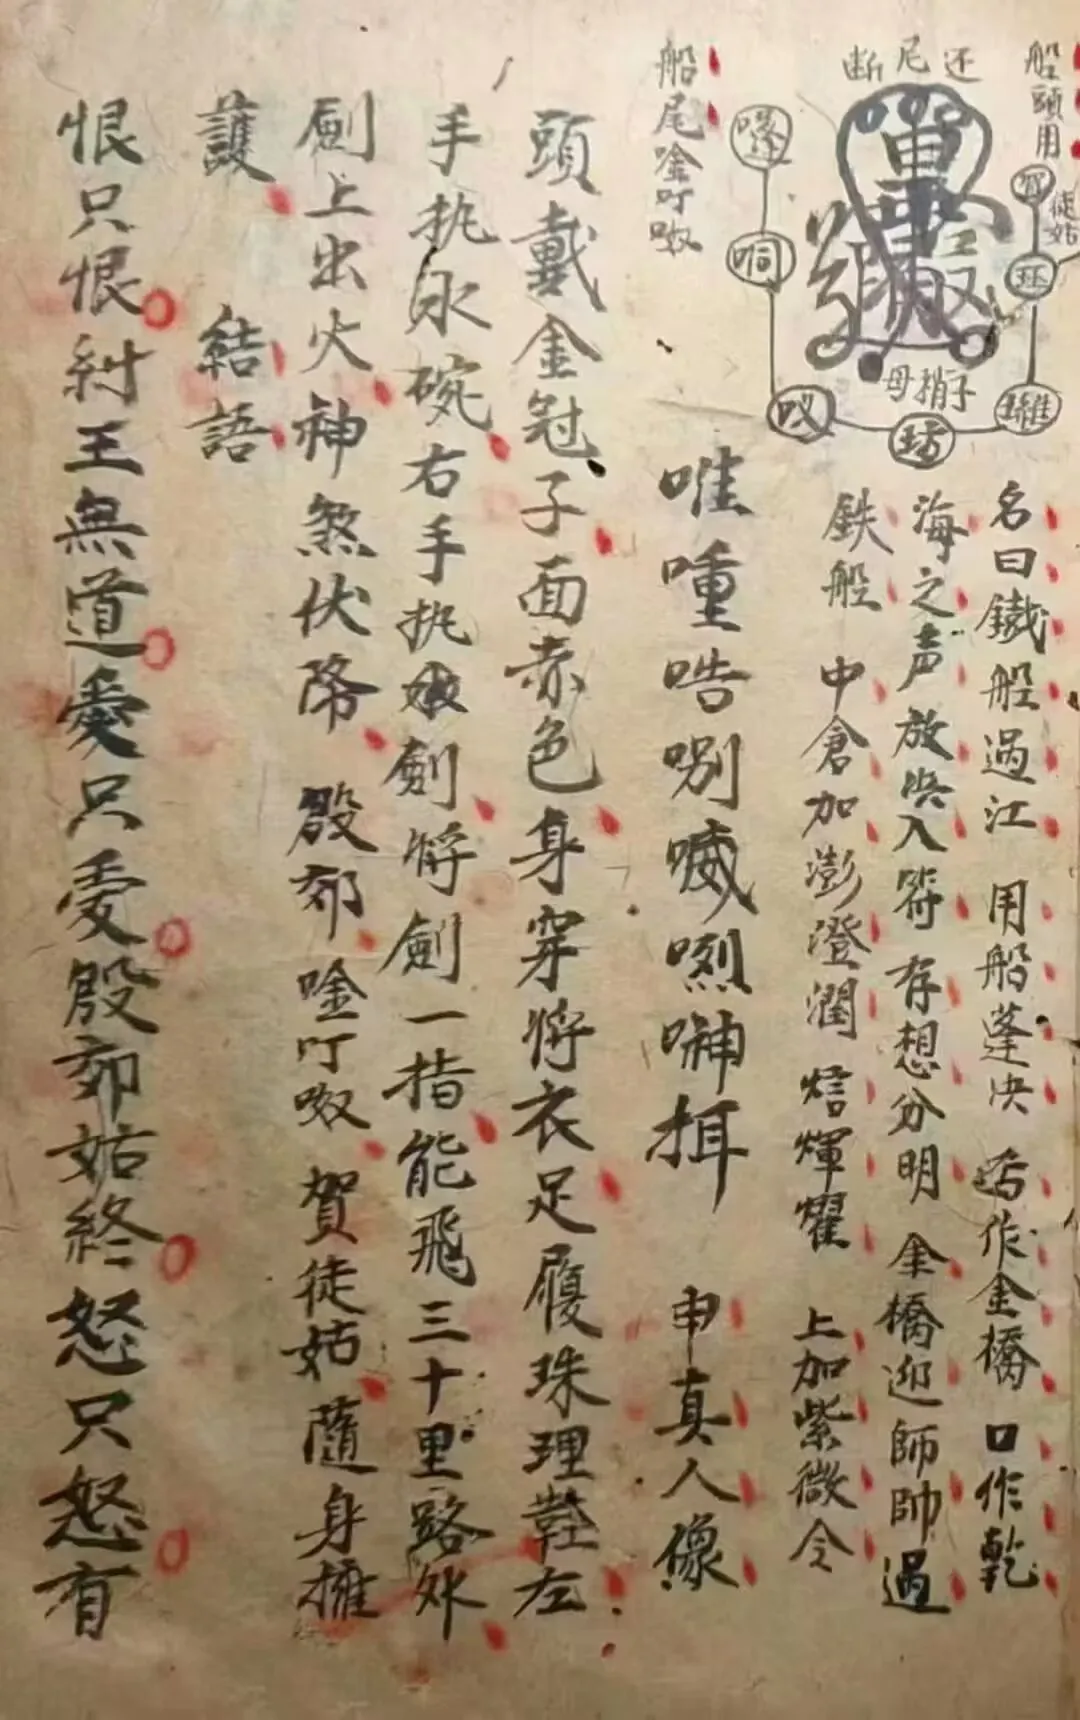 船頭用
徒姑
断尼还
母梢子
坊
船尾唫吖呶
名曰鐵船過江 用船蓬决 舌作金橋 口作乾
海之声 放决入符 存想分明 金橋迎師帥過
鉄船 中倉加澎澄潤 熖輝耀 上加紫微令
唯喠哠哵嘁烈𠹌挕 申真人像
頭戴金冠子面赤色身穿將衣足履珠理鞋左
手执水碗右手执劍將劍一指能飛三十里路外
劍上出火神煞伏降 殷郊 唫吖呶 賀徒姑 隨身擁
護 結語
恨只恨紂王無道愛只愛殷郊姑終怒只怒有